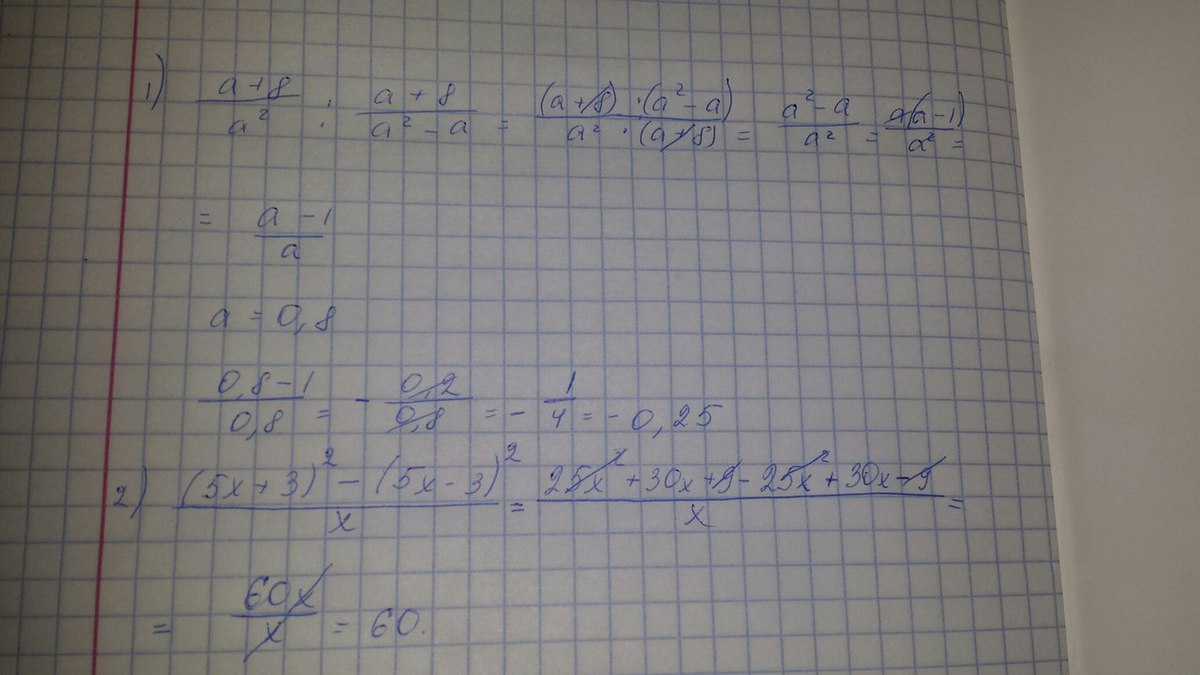 1) (a+8)/a² : (a+8)/(a²-a) = ((a+8)·(a²-a))/(a²·(a+8)) = (a²-a)/a² = a(a-1)/a² =
= (a-1)/a
a = 0,8
(0,8-1)/0,8 = - 0,2/0,8 = - 1/4 = - 0,25
2) ((5x+3)²-(5x-3)²)/x = (25x²+30x+9-25x²+30x-9)/x =
= 60x/x = 60.